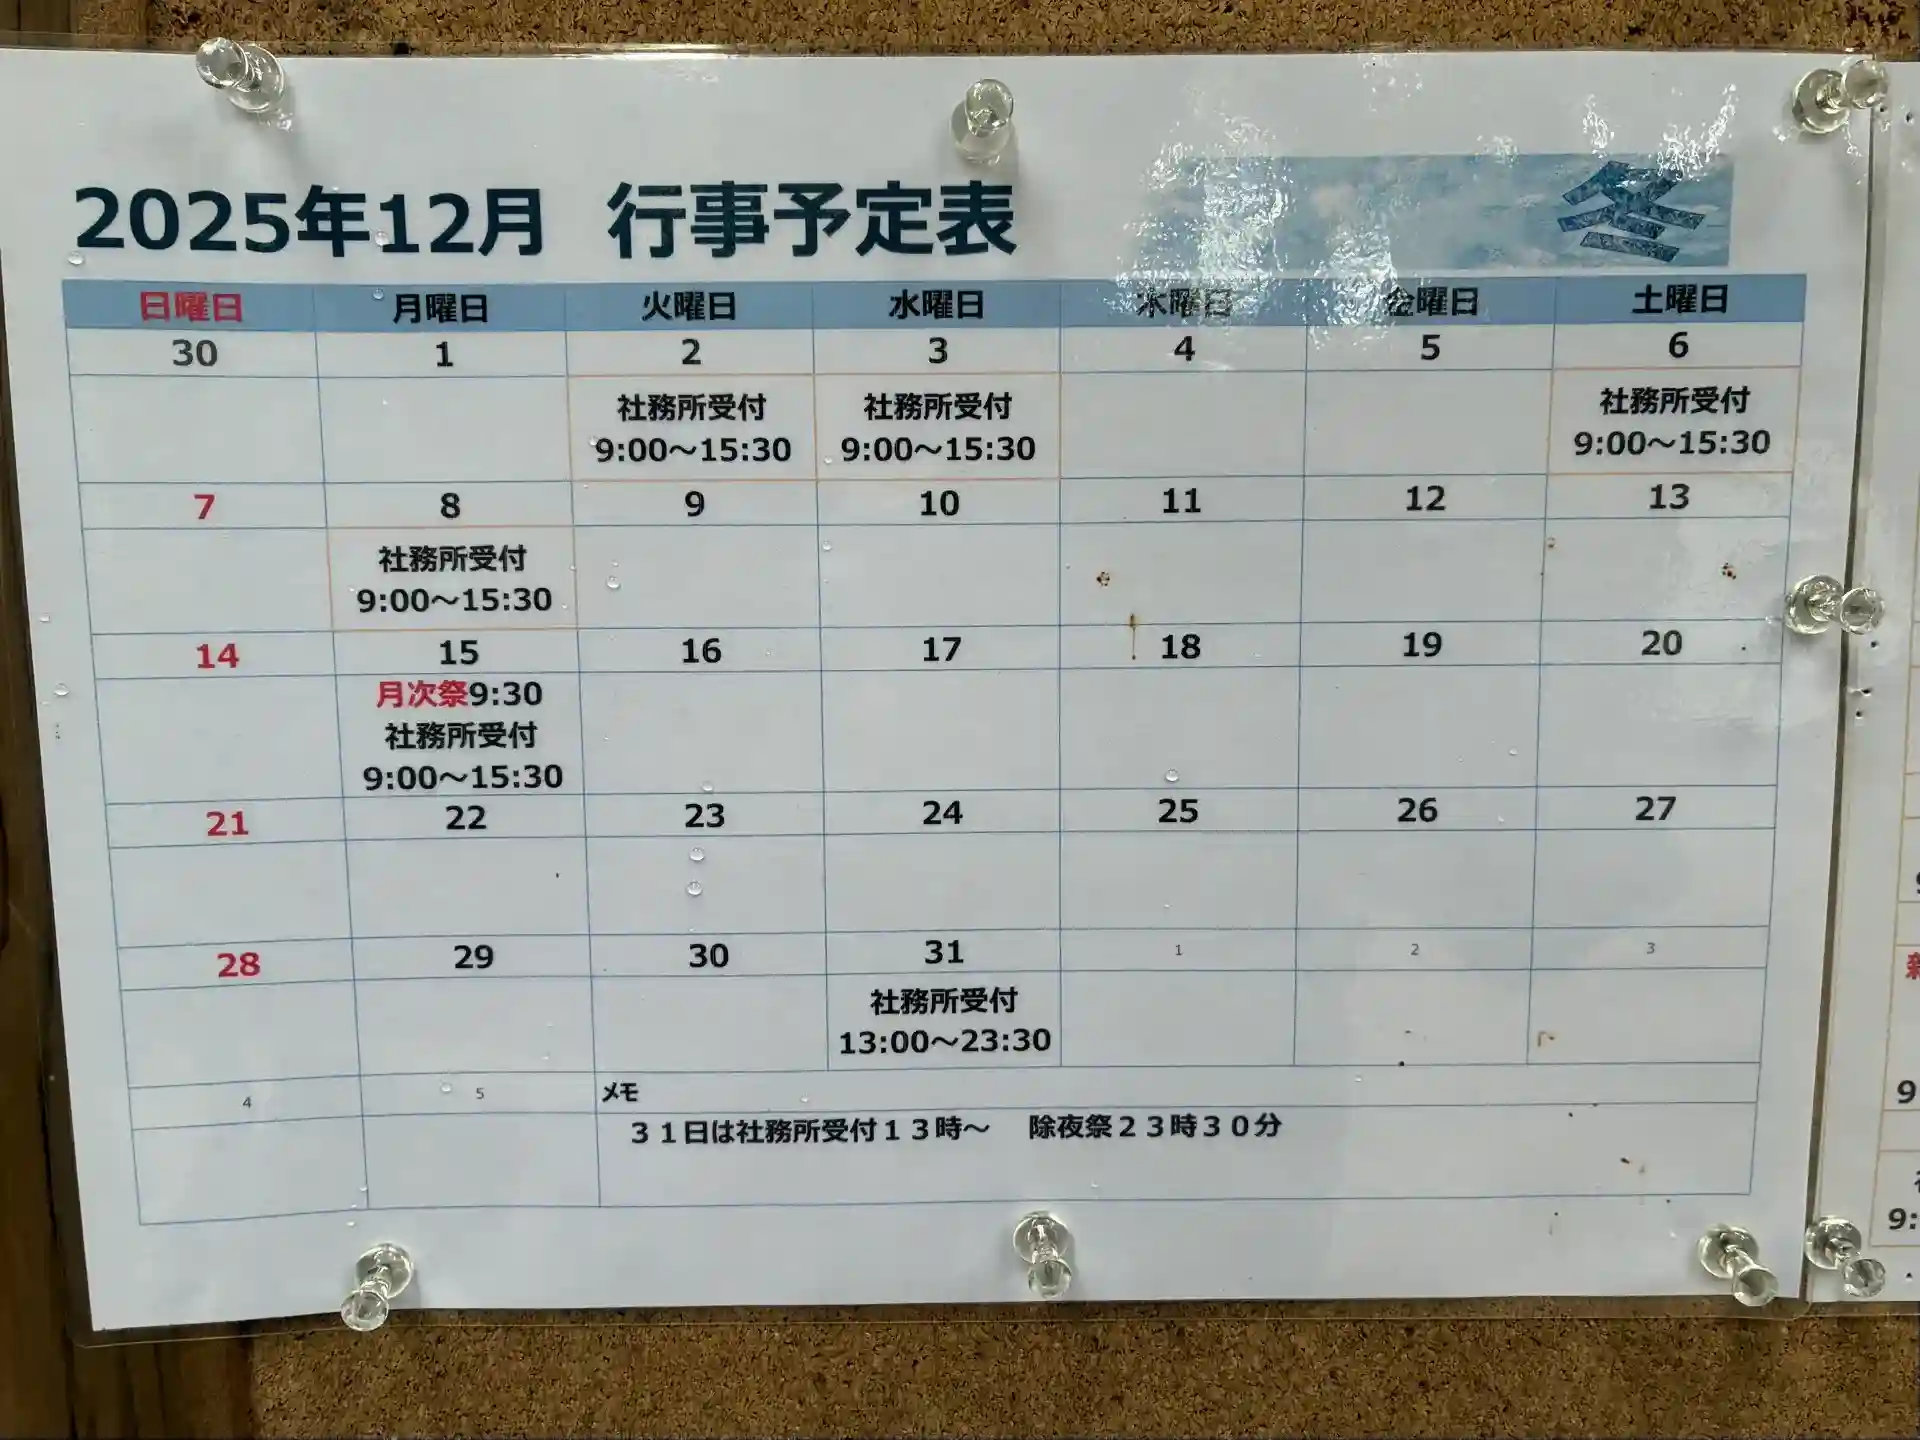 2025年12月 行事予定表
冬
日曜日 月曜日 火曜日 水曜日 木曜日 金曜日 土曜日
30 1 2 3 4 5 6
社務所受付 社務所受付 社務所受付
9:00～15:30 9:00～15:30 9:00～15:30
7 8 9 10 11 12 13
社務所受付
9:00～15:30
14 15 16 17 18 19 20
月次祭9:30
社務所受付
9:00～15:30
21 22 23 24 25 26 27
28 29 30 31 1 2 3
社務所受付
13:00～23:30
4 5 メモ
３１日は社務所受付１３時～ 除夜祭２３時３０分